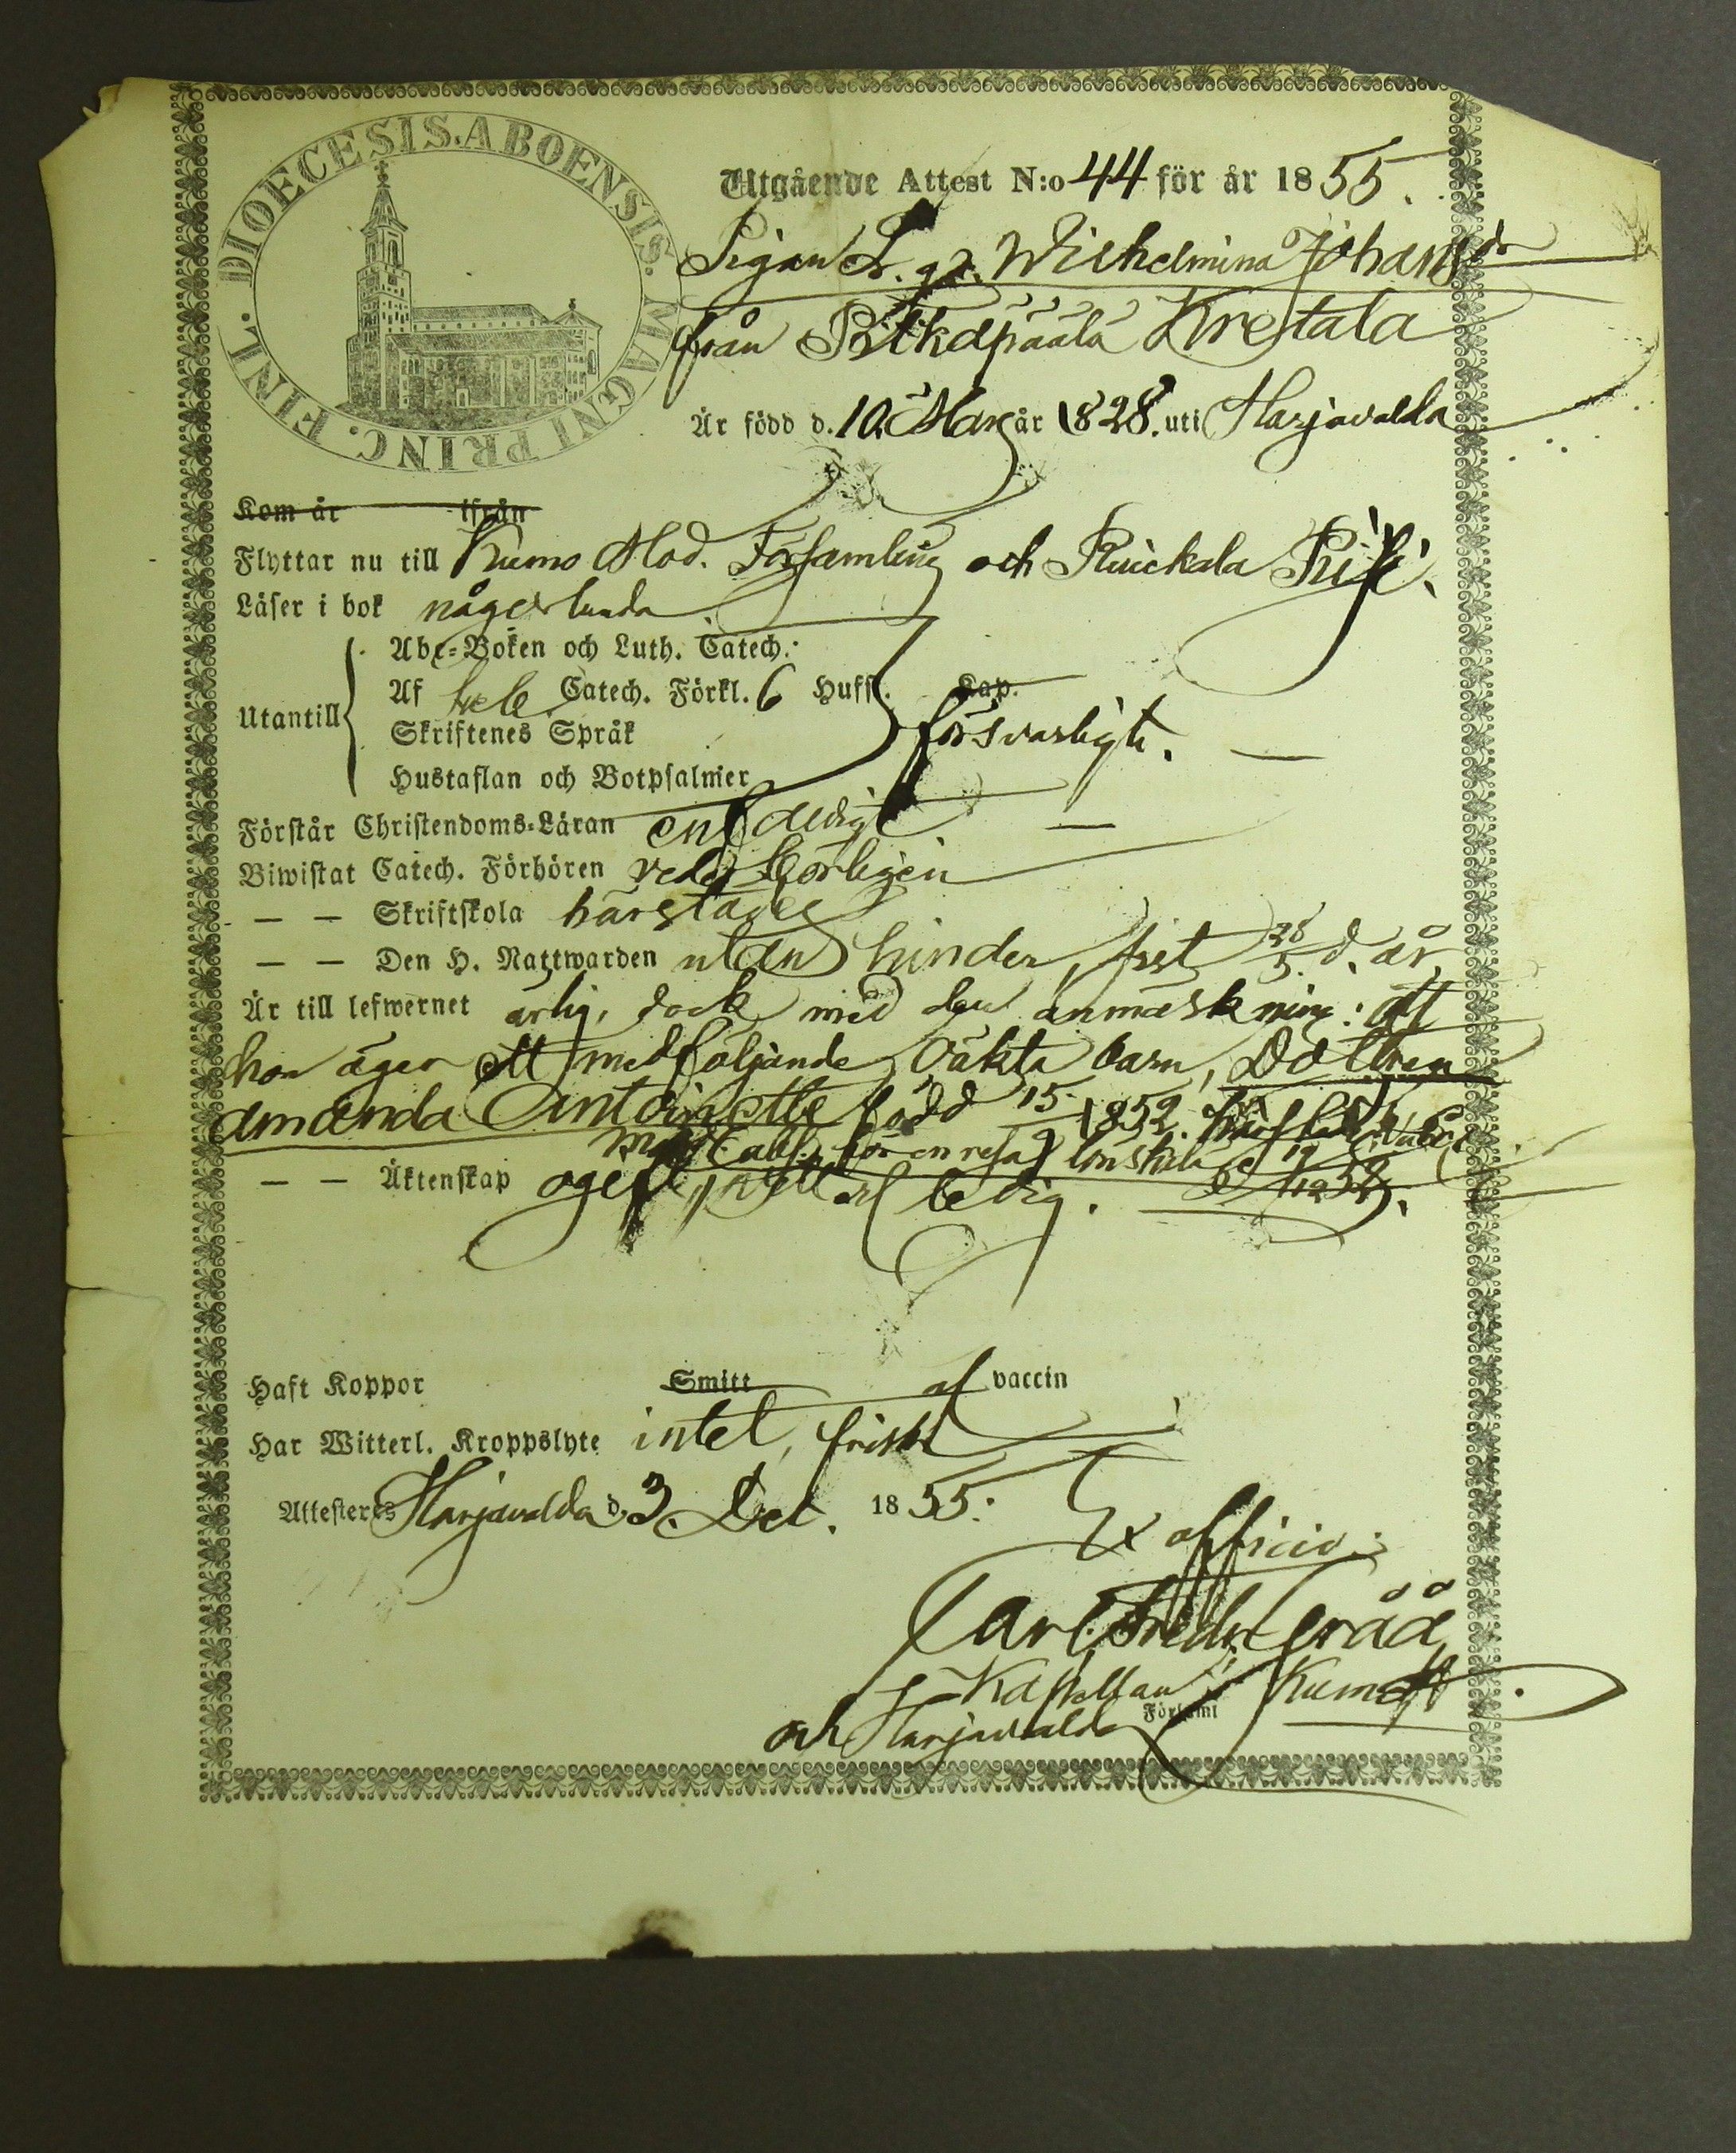 DIOECESIS. ABOENSIS. MAGNI PRINC. FINL.
Utgående Attest N:o 44 för år 1855.
Pigan Wilhelmina Johansdr
från Pitkäpäälä Krestala
Är född d. 10 Mars år 1828. uti Harjavalda
Kom år ifrån
Flyttar nu till Kumo Mod. Församling och
Läser i bok någorlunda
Utantill
Abc-Boken och Luth. Catech.
Af hela Catech. Förkl. 6 Hufst. Kap.
Skriftenes Språk försvarligt.
Hustaflan och Botpsalmer
Förstår Christendoms-Läran enfaldigt
Biwistat Catech. Förhören vederbörligen
— — Skriftskola härstädes
— — Den H. Nattwarden utan hinder, sist 28/5. d. år
Är till lefwernet ärlig, dock med den anmärkning: att
hon äger ett medföljande oäkta barn, Dottren
Amanda Antoinette född 15 1852.
abs. för en resa lönskaläge 19
— — Äktenskap ogift, ledig.
Haft Koppor Smitt af vaccin
Har Witterl. Kroppslyte intet, frisk
Attesteras Harjavalda d. 3. Dec. 1855.
Ex officio:
Carl Fredr Gråå
Kapellan i Kumo
och Harjavalda Förhaml